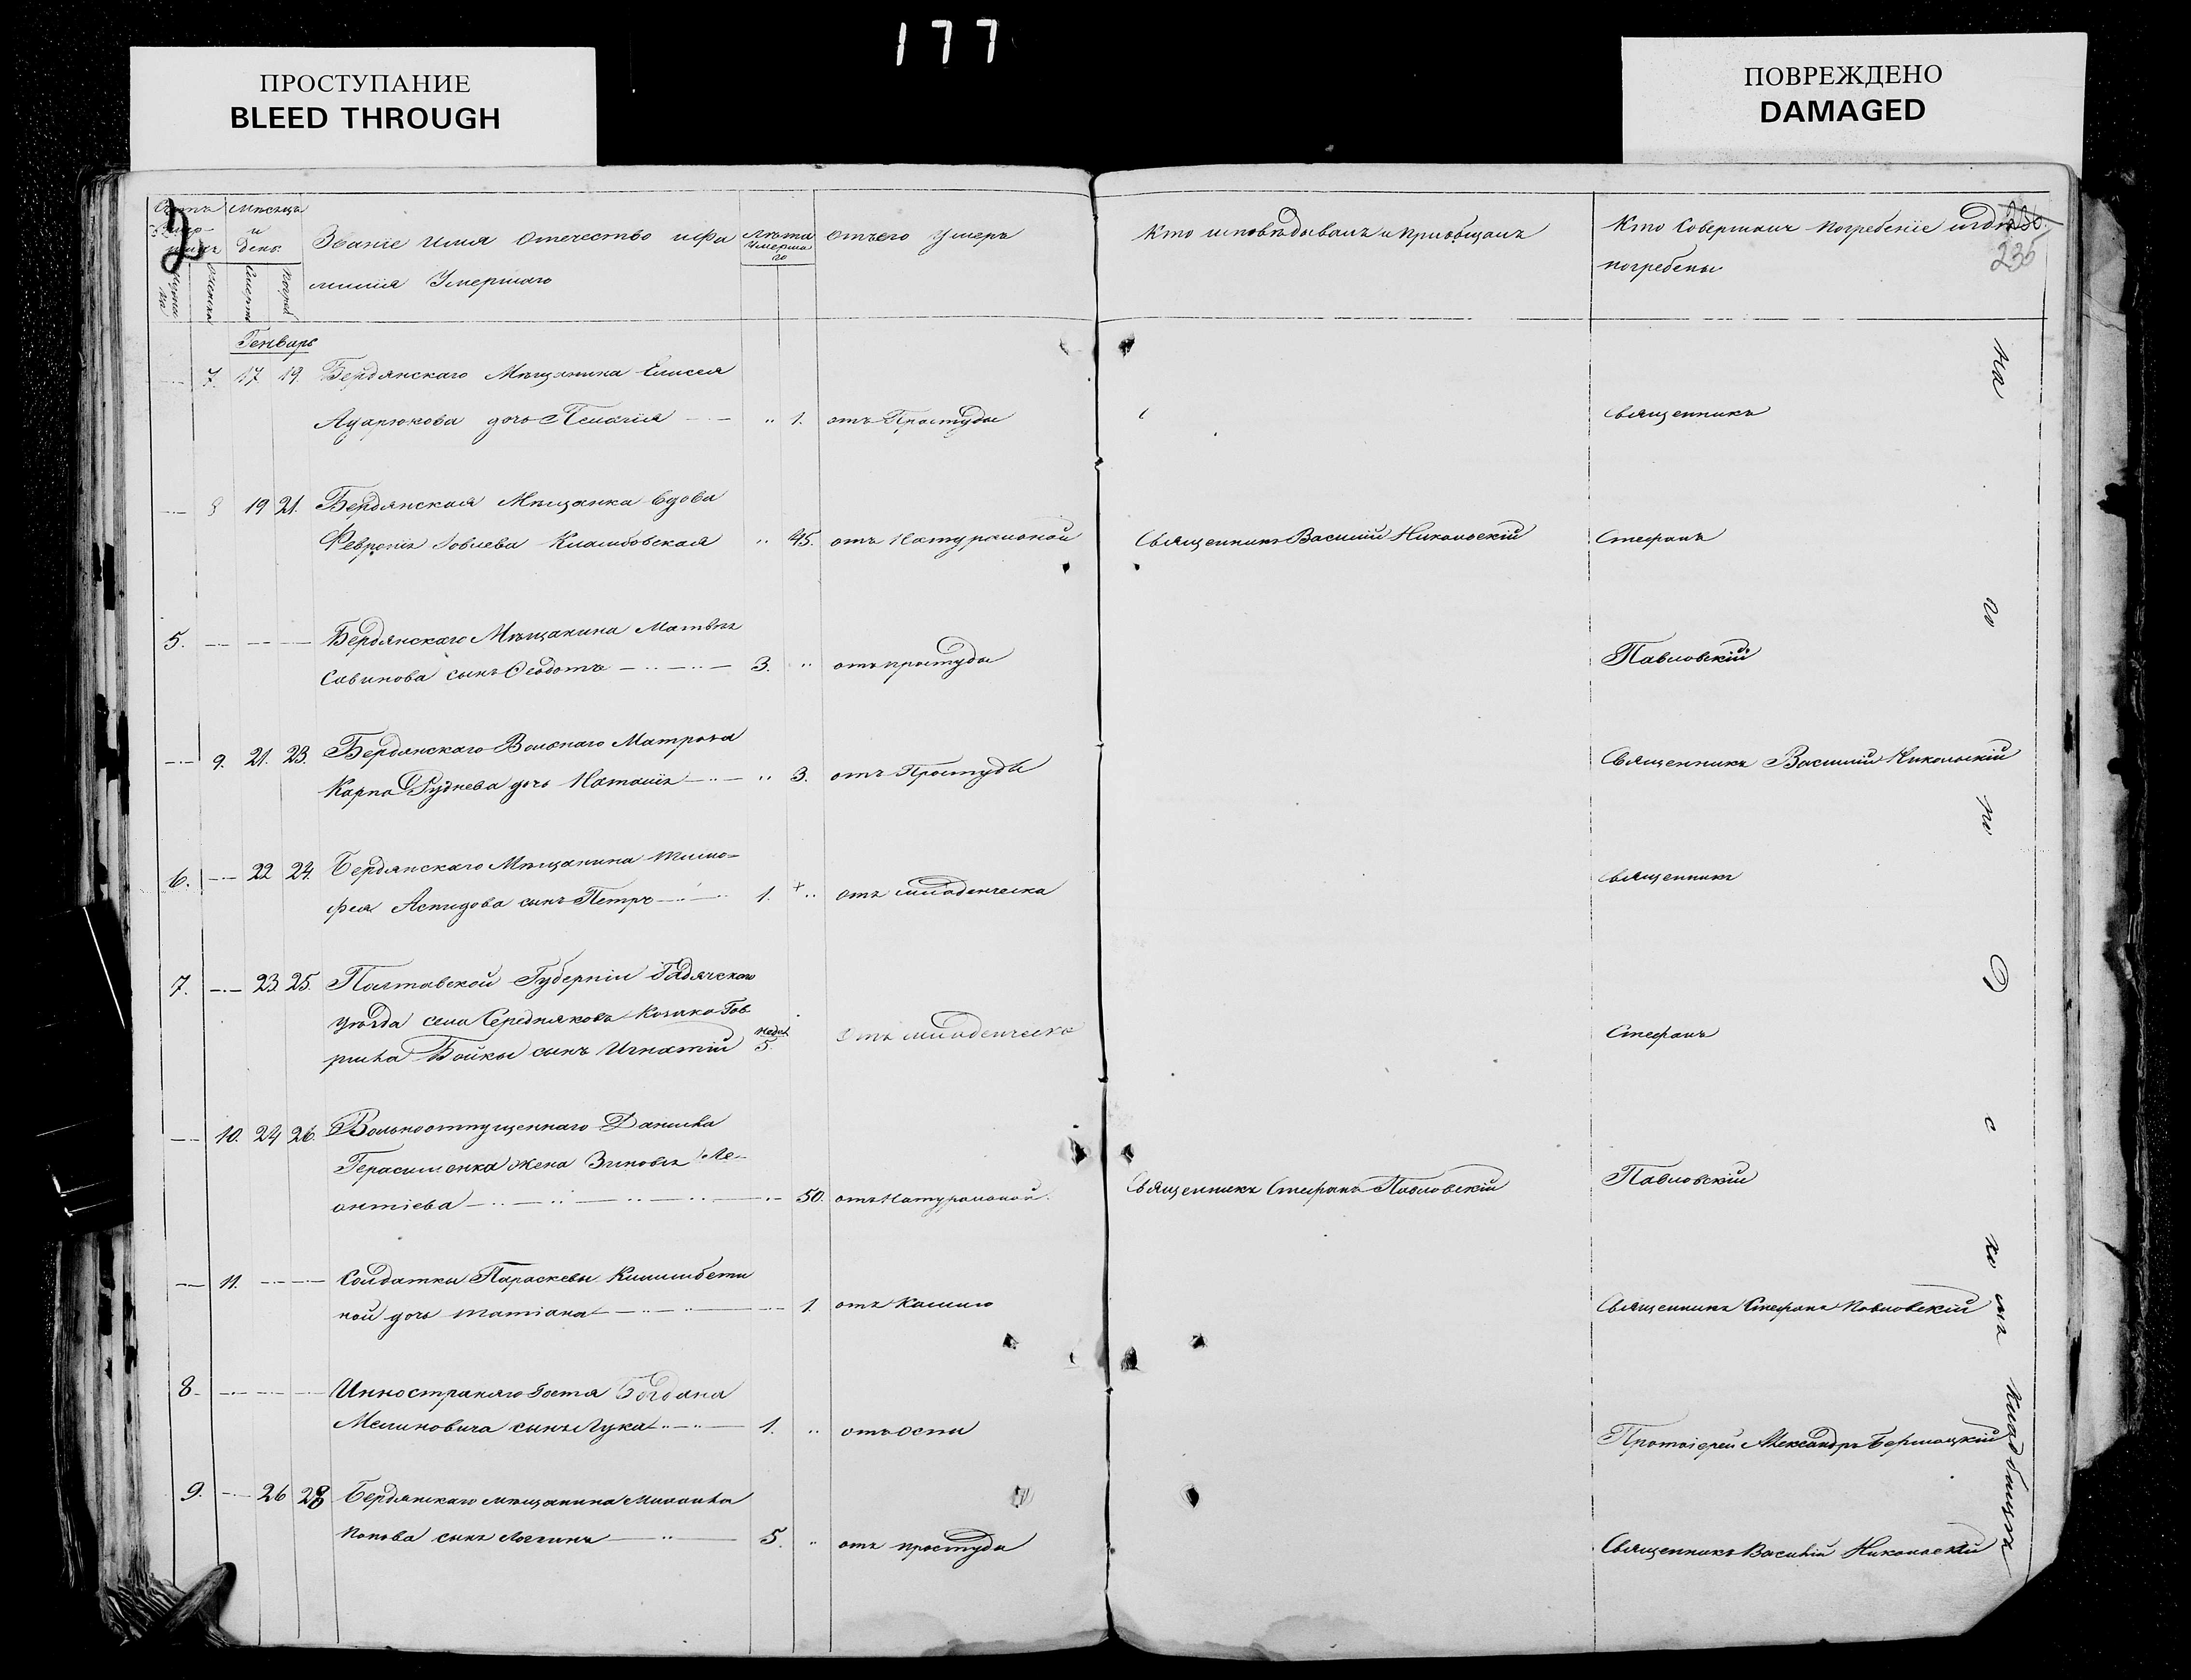 177
ПРОСТУПАНИЕ
BLEED THROUGH
ПОВРЕЖДЕНО
DAMAGED
Мѣсяцъ
и
день
Званіе имя Отечество и фа
милія Умершаго
Лѣта
Умерша
го
отъ чего Умеръ
Кто исповѣдывалъ и пріобщалъ
Кто Совершалъ Погребеніе и гдѣ
погребены
235
Генварь
7. 17 19. Бердянскаго Мѣщанина Елисея
дочь Пелагія 1. отъ Простуды
Священникъ
8 19 21. Бердянская Мѣщанка вдова
Февронія 45. отъ Натуральной Священникъ Василій Никольскій Стефанъ
5. Бердянскаго Мѣщанина Матвѣя
Савинова сынъ Ѳеодотъ 3. отъ простуды
Павловскій
9. 21. 23. Бердянскаго Вольнаго Матроза
Карпа Руднева дочь Наталія 3. отъ Простуды
Священникъ Василій Никольскій
6. 22 24. Бердянскаго Мѣщанина Тимо-
фея Аспидова сынъ Петръ 1. отъ младенческа
Священникъ
7. 23. 25. Полтавской Губерніи Гадячскаго
уѣзда села Середняковъ Козака Гав
рила Бойка сынъ Игнатій недел 5. отъ младенческа
Стефанъ
10. 24 26. Вольноотпущеннаго Данила
Герасименка жена Зиновія Ле-
онтіева 50. отъ Натуральной Священникъ Стефанъ Павловскій
Павловскій
11. Солдатки Параскевы
ной дочь Татіана 1. отъ Кашлю
Священникъ Стефанъ Павловскій
8. Инностранаго Гостя Богдана
Милиновича сынъ Лука 1. отъ Оспи
Протоіерей Александръ
9. 26 28 Бердянскаго мѣщанина Михаила
Попова сынъ Логгинъ 5. отъ простуды
Священникъ Василій Никольскій
На го ро д с ко мъ кладбищѣ